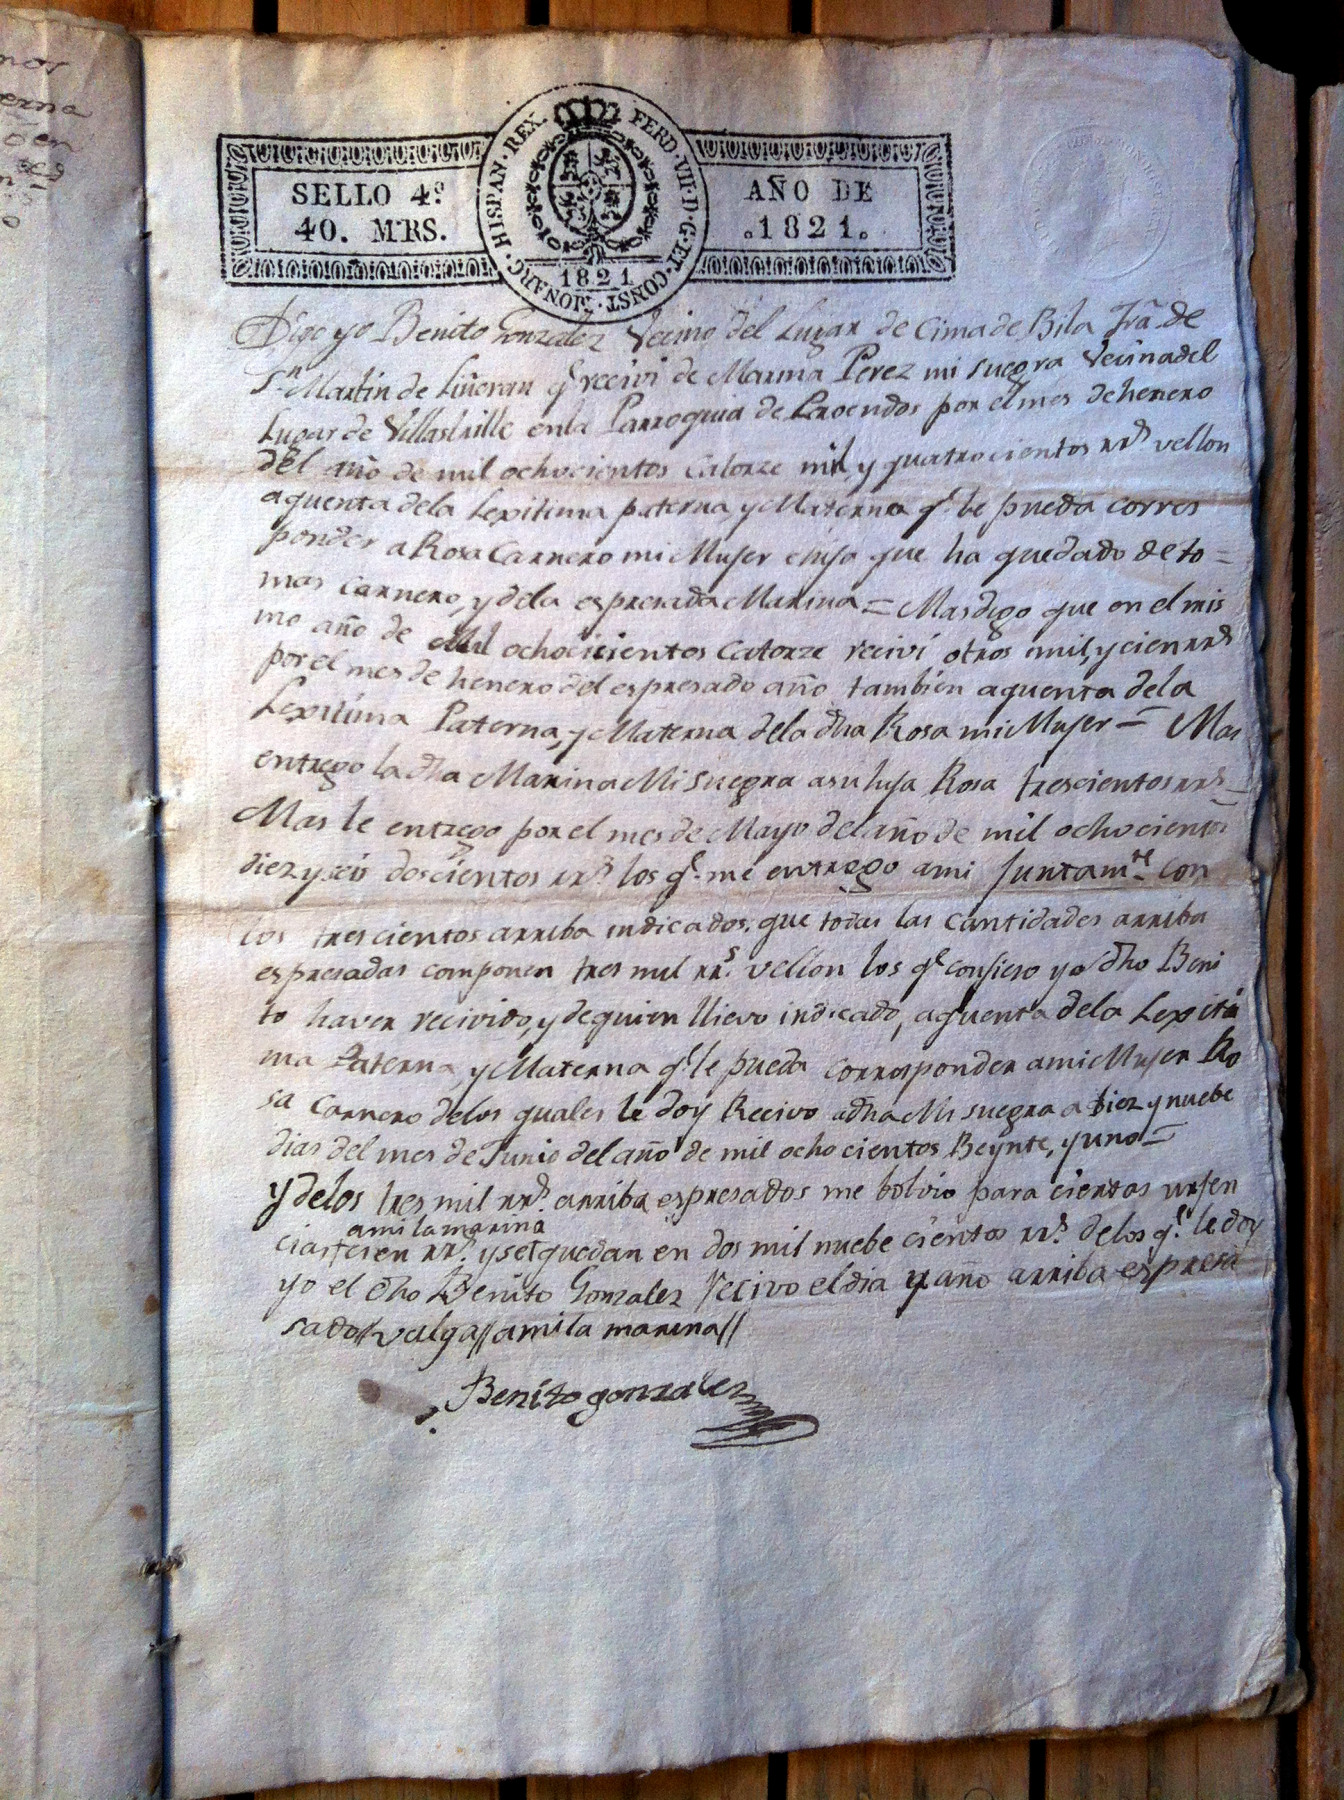 nos
erna
SELLO 4º
40. MRS.
HISPAN. REX. FERD. VII. D. G. ET. CONST. MONARC.
1821
AÑO DE
1821.
Digo yo Benito Gonzalez Vecino del Lugar de Cima de Bila Fra. de
Sn. Martin de qe. recivi de Marina Perez mi suegra Vecina del
Lugar de en la Parroquia de por el mes de henero
del año de mil ochocientos Catorze mil, y quatrocientos rrs. vellon
a quenta de la Lexitima paterna, y Materna qe. le pueda corres
ponder a Rosa Carnero mi Muger e hija que ha quedado de to=
mas Carnero, y de la espresada Marina = Mas digo que en el mis
mo año de Mil ochocicientos Catorze recivi otros mil, y cien rrs.
por el mes de henero del espresado año tambien a quenta de la
Lexitima Paterna, y Materna de la dha Rosa mi Muger = Mas
entrego la dha Marina Mi suegra a su hija Rosa trescientos rrs. =
Mas le entrego por el mes de Mayo del año de mil ochocientos
diez y seis doscientos rrs. los qe. me entrego a mi Juntamte. con
los trescientos arriba indicados, que todas las cantidades arriba
espresadas componen tres mil rrs. vellon los qe. confieso yo dho Beni
to haver recivido, y de quien llevo indicado, a quenta de la Lexiti
ma Paterna, y Materna qe. le pueda corresponder a mi Muger Ro
sa Carnero de los quales le doy Recivo a dha Mi suegra a diez y nuebe
dias del mes de Junio del año de mil ochocientos Beynte, y uno =
y de los tres mil rrs. arriba espresados me bolvio para ciertas urjen
a mi la marina
cias cien rrs. y se quedan en dos mil nuebe cientos rrs. de los qe. le doy
yo el dho Benito Gonzalez Recivo el dia y año arriba espresa
sado // valga // a mi la marina //
Benito gonzalez